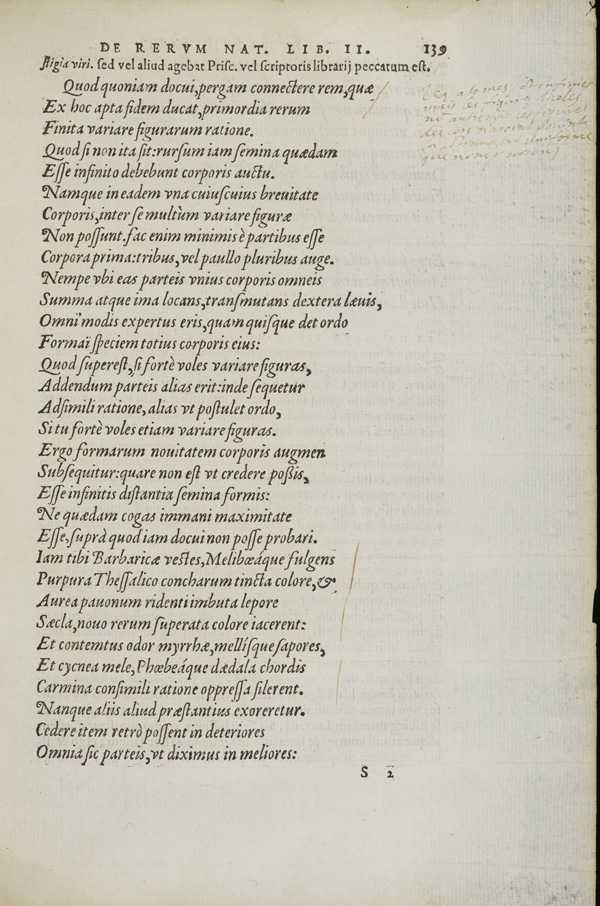 DE RERVM NAT. LIB. II. 139
stigia viri. sed vel aliud agebat Prisc. vel scriptoris librarij peccatum est.
Quod quoniam docui, pergam connectere rem, quæ
Ex hoc apta fidem ducat, primordia rerum
Finita variare figurarum ratione.
Quod si non ita sit: rursum iam semina quædam
Esse infinito debebunt corporis auctu.
Namque in eadem vna cuiuscuius breuitate
Corporis, inter se multùm variare figuræ
Non possunt. fac enim minimis è partibus esse
Corpora prima: tribus, vel paullo pluribus auge.
Nempe vbi eas parteis vnius corporis omneis
Summa atque ima locans, transmutans dextera læuis,
Omnimodis expertus eris, quam quisque det ordo
Formaï speciem totius corporis eius:
Quod superest, si fortè voles variare figuras,
Addendum parteis alias erit: inde sequetur
Adsimili ratione, alias vt postulet ordo,
Si tu fortè voles etiam variare figuras.
Ergo formarum nouitatem corporis augmen
Subsequitur: quare non est vt credere possis,
Esse infinitis distantia semina formis:
Ne quædam cogas immani maximitate
Esse, suprà quod iam docui non posse probari.
Iam tibi Barbaricæ vestes, Melibœáque fulgens
Purpura Thessalico concharum tincta colore, &
Aurea pauonum ridenti imbuta lepore
Sæcla, nouo rerum superata colore iacerent:
Et contemtus odor myrrhæ, mellísque sapores,
Et cycnea mele, Phœbeáque dædala chordis
Carmina consimili ratione oppressa silerent.
Nanque aliis aliud præstantius exoreretur.
Cedere item retrò possent in deteriores
Omnia sic parteis, vt diximus in meliores:
S 2